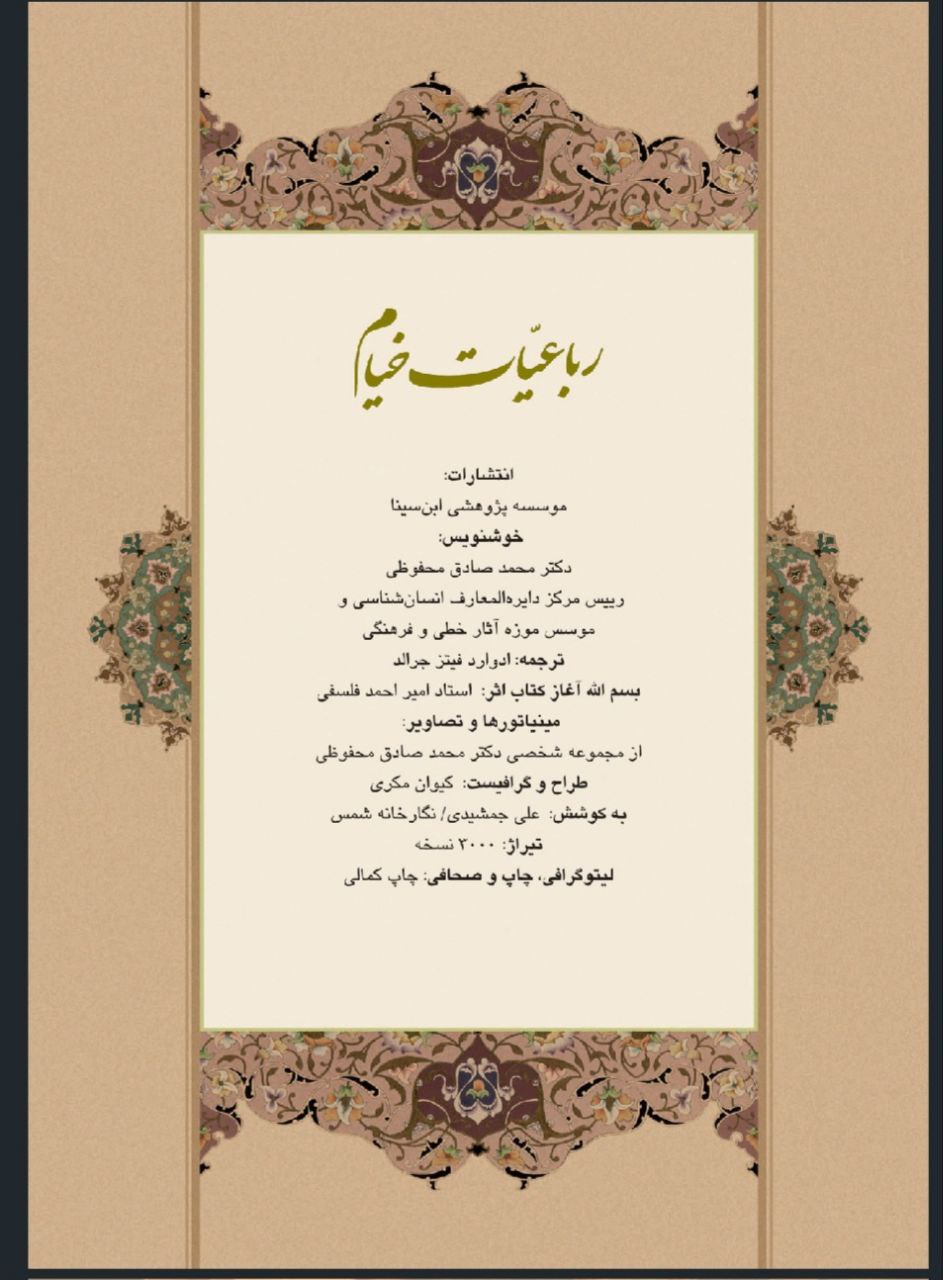 رباعیّات خیام
انتشارات:
موسسه پژوهشی ابن‌سینا
خوشنویس:
دکتر محمد صادق محفوظی
رییس مرکز دایره‌المعارف انسان‌شناسی و
موسس موزه آثار خطی و فرهنگی
ترجمه: ادوارد فیتز جرالد
بسم الله آغاز کتاب اثر: استاد امیر احمد فلسفی
مینیاتورها و تصاویر:
از مجموعه شخصی دکتر محمد صادق محفوظی
طراح و گرافیست: کیوان مکری
به کوشش: علی جمشیدی/ نگارخانه شمس
تیراژ: ۳۰۰۰ نسخه
لیتوگرافی، چاپ و صحافی: چاپ کمالی